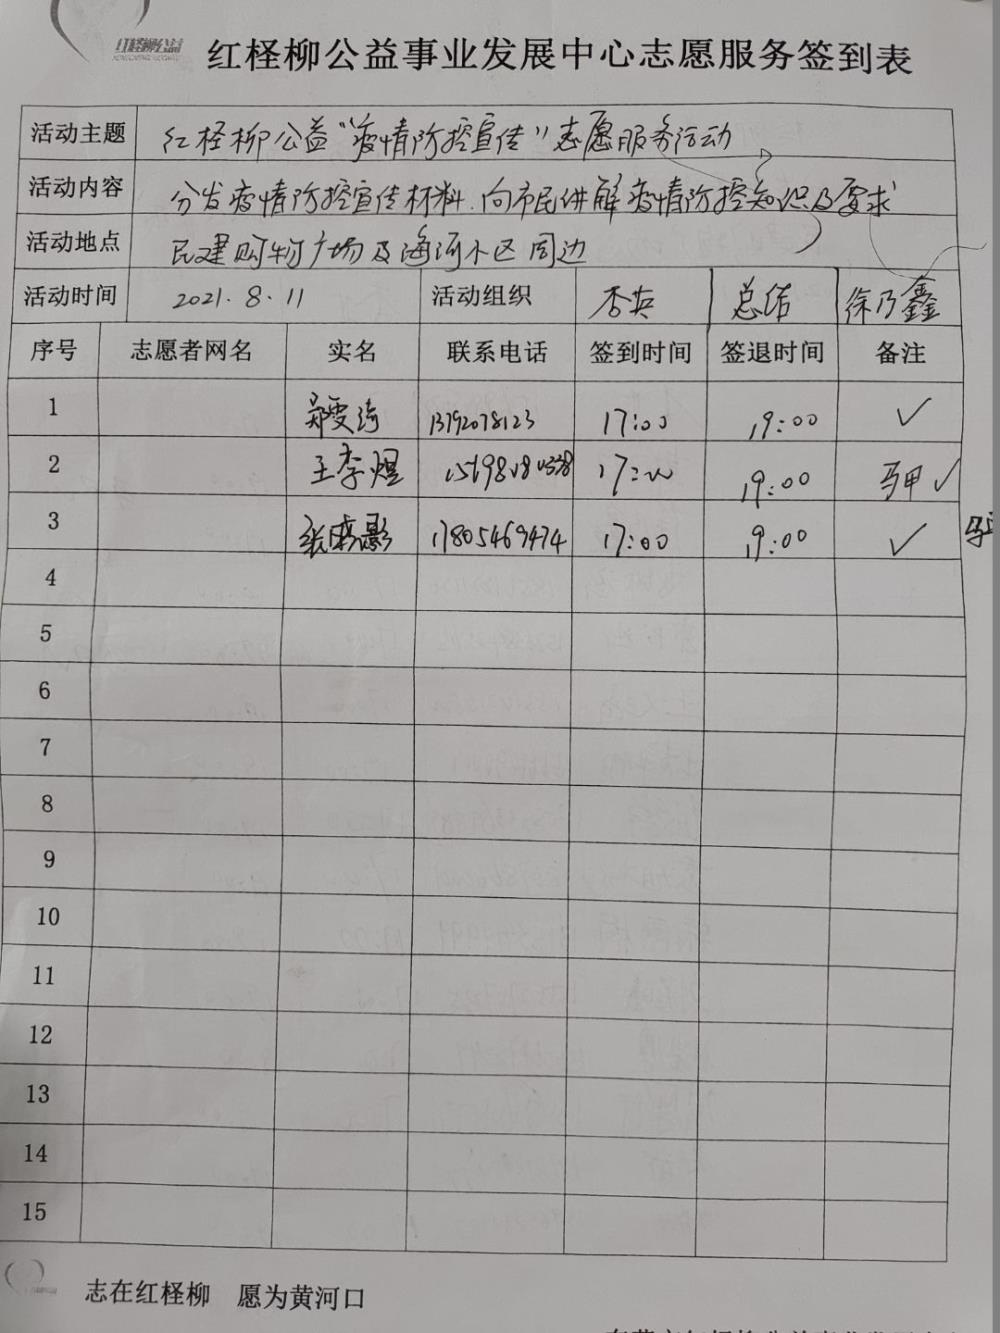 红柽柳公益
红柽柳公益事业发展中心志愿服务签到表
活动主题 红柽柳公益"疫情防控宣传"志愿服务活动
活动内容 分发疫情防控宣传材料.向市民讲解疫情防控知识及要求
活动地点 民建购物广场及海河小区周边
活动时间 2021.8.11 活动组织 总结 徐乃鑫
序号 志愿者网名 实名 联系电话 签到时间 签退时间 备注
1 郑雯涛 13792078123 17:00 19:00 ✓
2 王李煜 17:00 19:00 马甲✓
3 17805469474 17:00 19:00 ✓
4
5
6
7
8
9
10
11
12
13
14
15
志在红柽柳 愿为黄河口